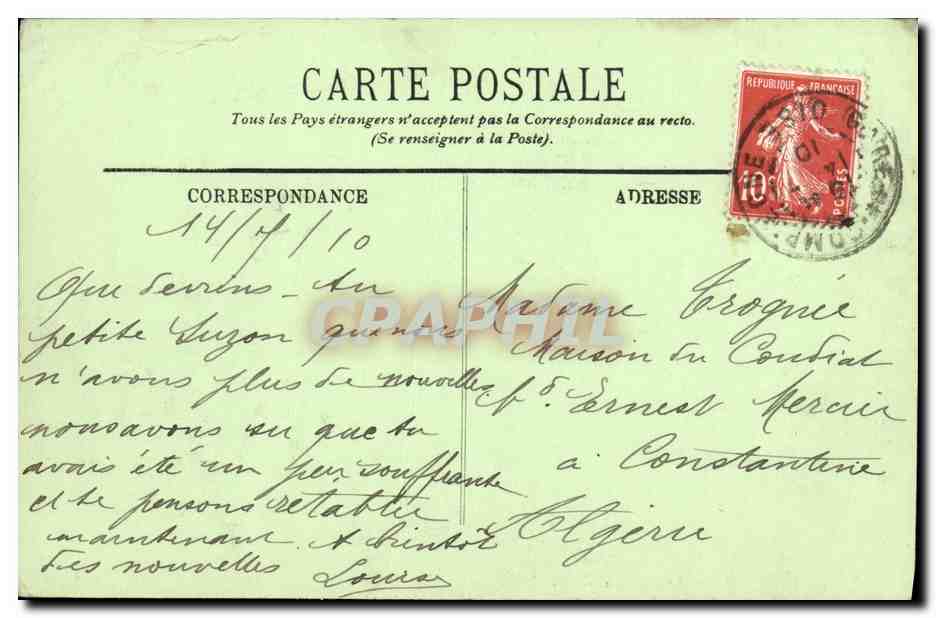 CARTE POSTALE
Tous les Pays étrangers n'acceptent pas la Correspondance au recto.
(Se renseigner à la Poste).
CORRESPONDANCE
14/7/10
Que deviens-tu
petite Suzon que nous
n'avons plus de nouvelles
nous avons su que tu
avais été un peu souffrante
et te pensons rétablie
maintenant. A bientôt
des nouvelles
Louise
ADRESSE
REPUBLIQUE FRANÇAISE
10c
POSTES
Madame Trognée
Maison du Coudiat
Bd. Ernest Mercier
à Constantine
Algérie
CRAPHIL